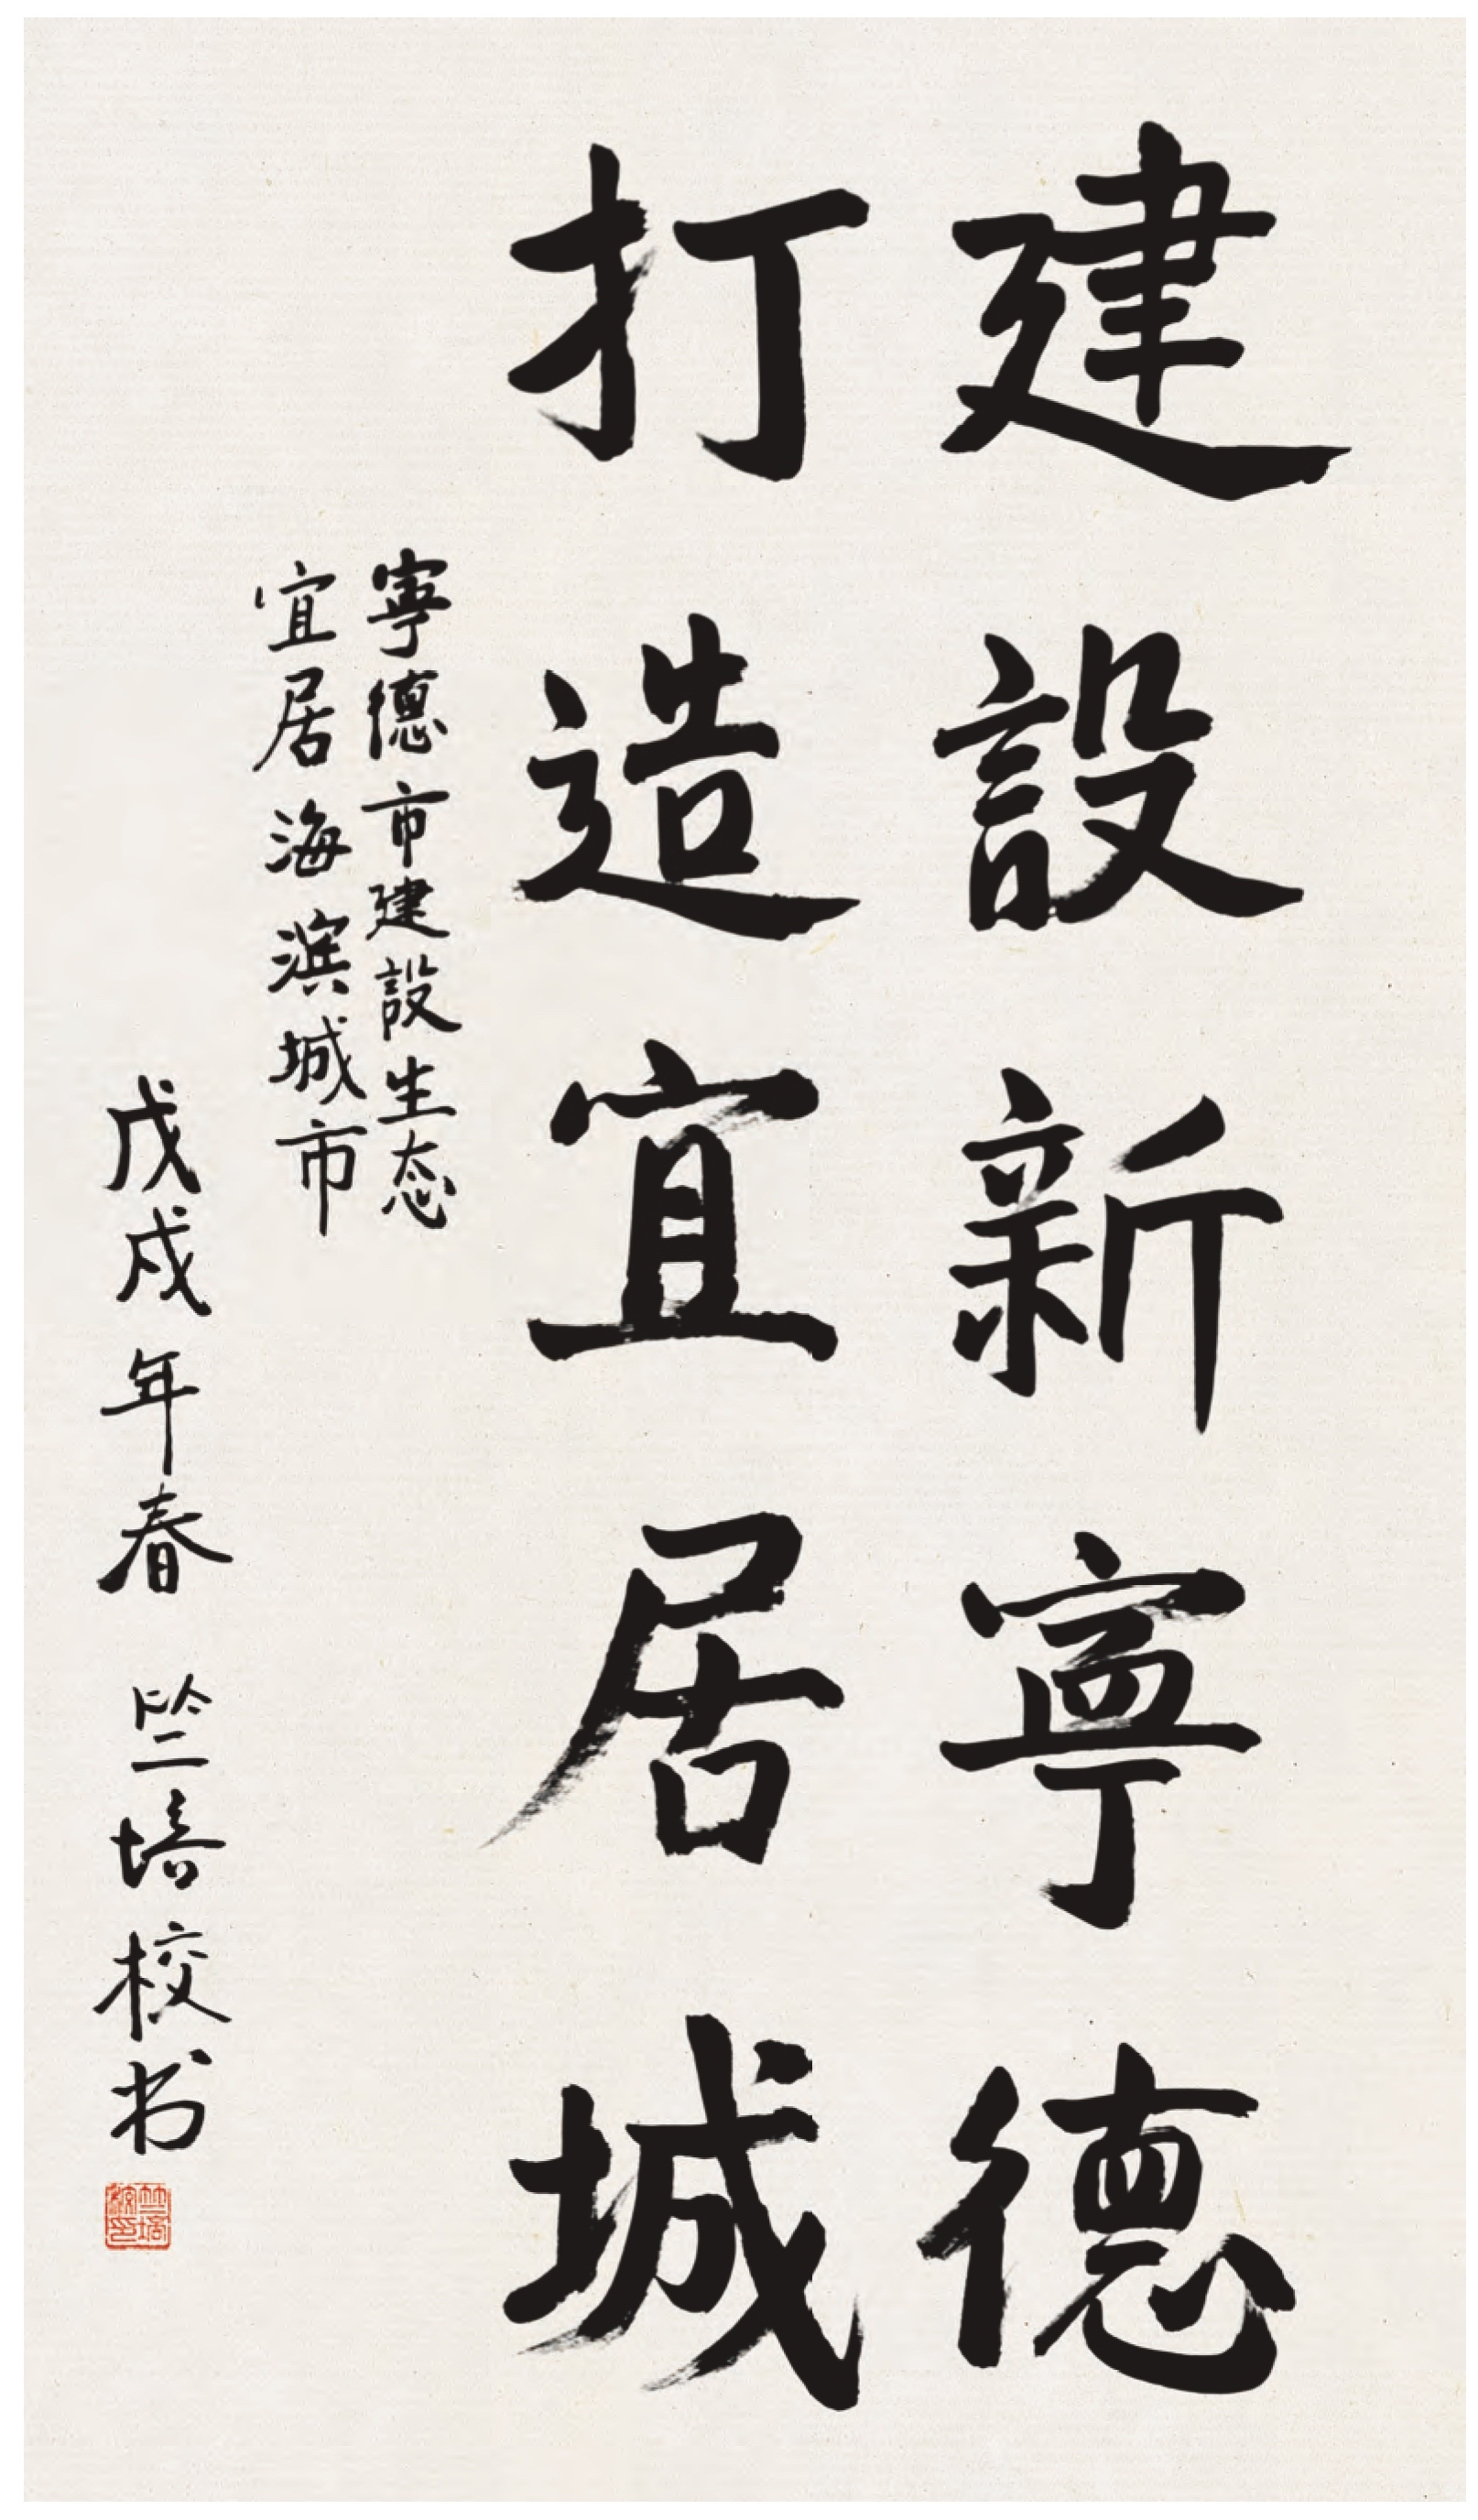 建設新寧德
打造宜居城
寧德市建設生态
宜居海滨城市
戊戌年春 竺培校书
竺培校印